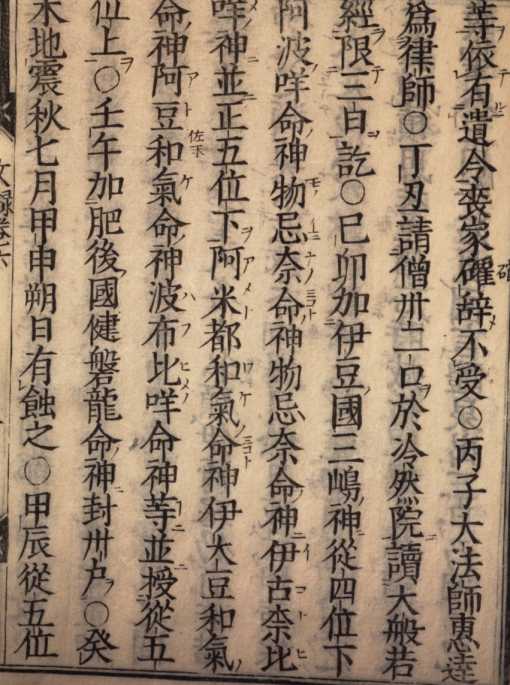 等依有遺令喪家確辭不受○丙子大法師惠達
爲律師○丁丑請僧卅二口於冷然院讀大般若
經限三日訖○己卯加伊豆國三嶋神從四位下
阿波咩命神物忌奈命神物忌奈命神伊古奈比
咩神並正五位下阿米都和氣命神伊太豆和氣
命神阿豆和氣命神波布比咩命神等並授從五
位上○壬午加肥後國健磐龍命神封卅戸○癸
未地震秋七月甲申朔日有蝕之○甲辰從五位